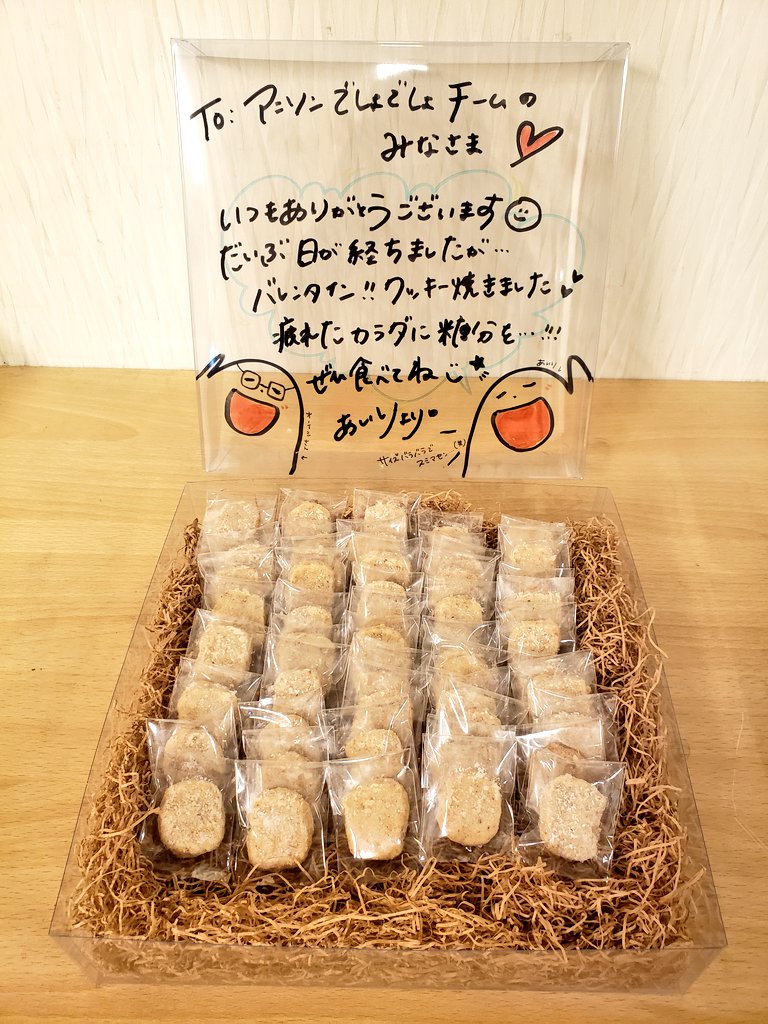 To: アニソンでしょでしょチームの
みなさま
いつもありがとうございます
だいぶ日が経ちましたが…
バレンタイン!! クッキー焼きました
疲れたカラダに糖分を…!!!
ぜひ食べてね
あいりより。
あいり
サイズバラバラで
スミマセン
(笑)